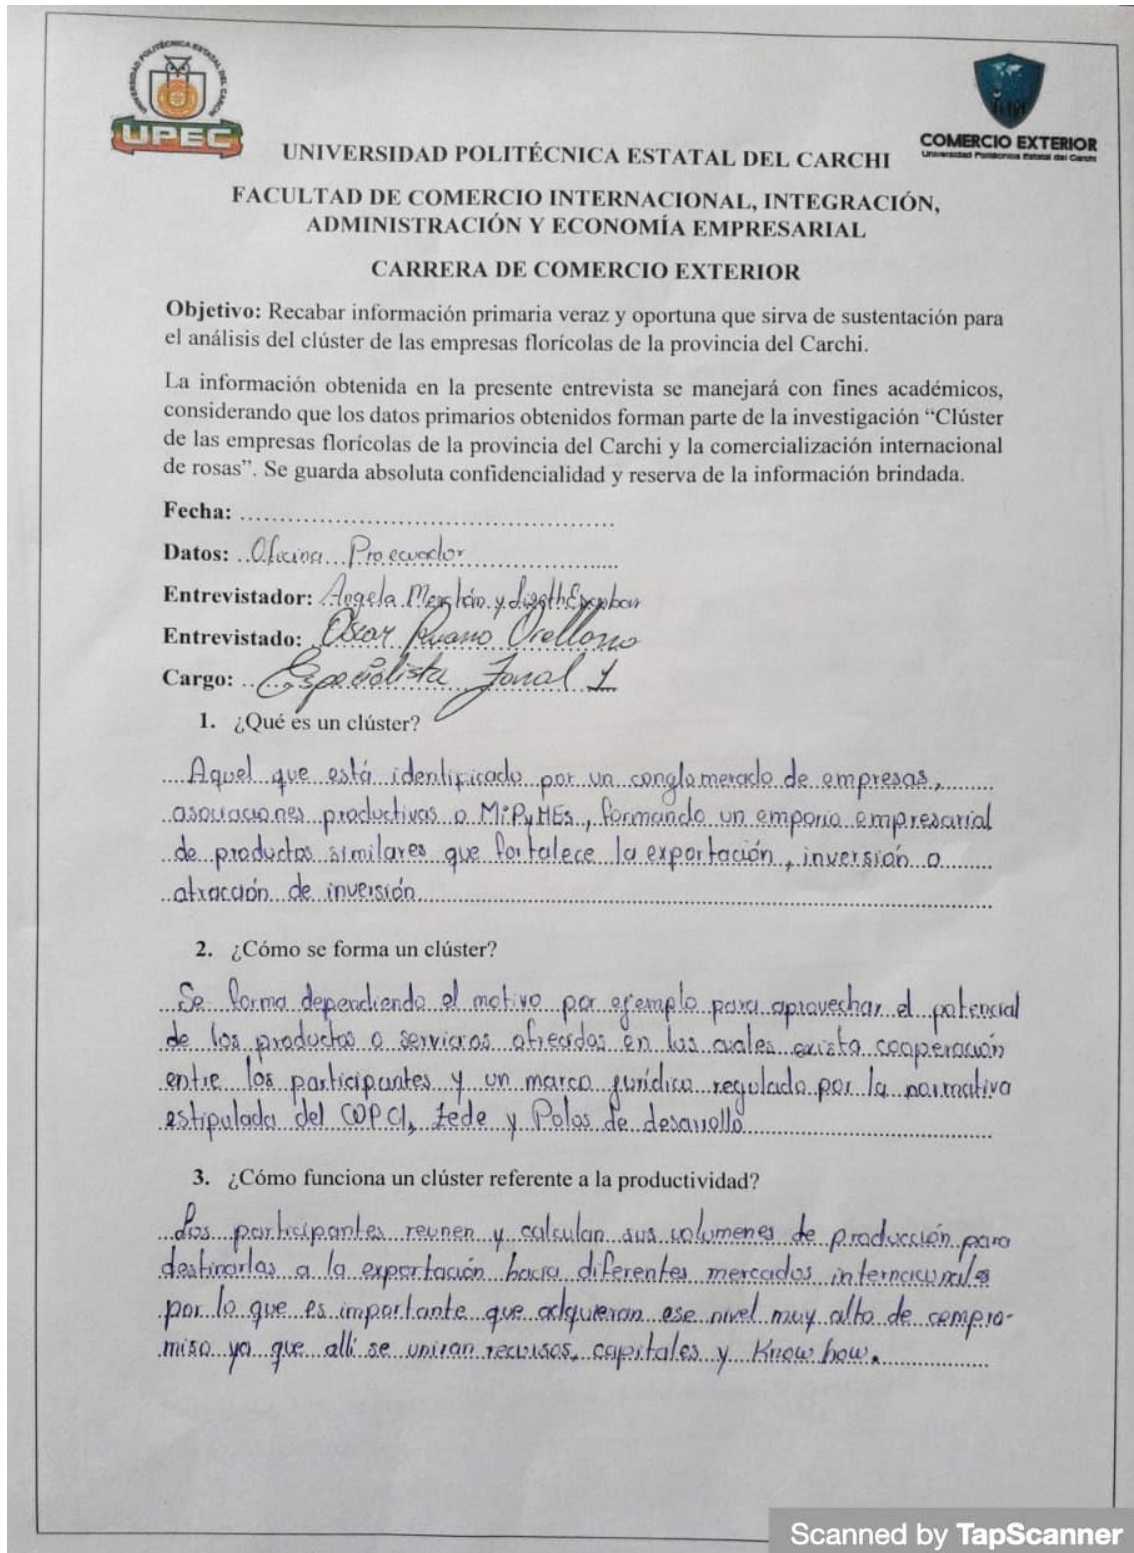 UNIVERSIDAD POLITÉCNICA ESTATAL DEL CARCHI
UPEC
COMERCIO EXTERIOR
Universidad Politécnica Estatal del Carchi
UNIVERSIDAD POLITÉCNICA ESTATAL DEL CARCHI
FACULTAD DE COMERCIO INTERNACIONAL, INTEGRACIÓN,
ADMINISTRACIÓN Y ECONOMÍA EMPRESARIAL
CARRERA DE COMERCIO EXTERIOR
Objetivo: Recabar información primaria veraz y oportuna que sirva de sustentación para
el análisis del clúster de las empresas florícolas de la provincia del Carchi.
La información obtenida en la presente entrevista se manejará con fines académicos,
considerando que los datos primarios obtenidos forman parte de la investigación “Clúster
de las empresas florícolas de la provincia del Carchi y la comercialización internacional
de rosas”. Se guarda absoluta confidencialidad y reserva de la información brindada.
Fecha:
Datos: Oficina Proecuador
Entrevistador: Angela y Lizeth Escobar
Entrevistado: Oscar Ruano Orellano
Cargo: Especialista Zonal 1
1. ¿Qué es un clúster?
Aquel que está identificado por un conglomerado de empresas,
asociaciones productivas o MiPyMEs, formando un emporio empresarial
de productos similares que fortalece la exportación, inversión o
atracción de inversión
2. ¿Cómo se forma un clúster?
Se forma dependiendo el motivo por ejemplo para aprovechar el potencial
de los productos o servicios ofrecidos en las cuales exista cooperación
entre los participantes y un marco jurídico regulado por la normativa
estipulada del COPCI, Zede y Polos de desarrollo
3. ¿Cómo funciona un clúster referente a la productividad?
Los participantes reunen y calculan sus volumenes de producción para
destinarlas a la exportación hacia diferentes mercados internacionales
por lo que es importante que adquieran ese nivel muy alto de compro-
miso ya que allí se uniran recursos, capitales y Know how.
Scanned by TapScanner